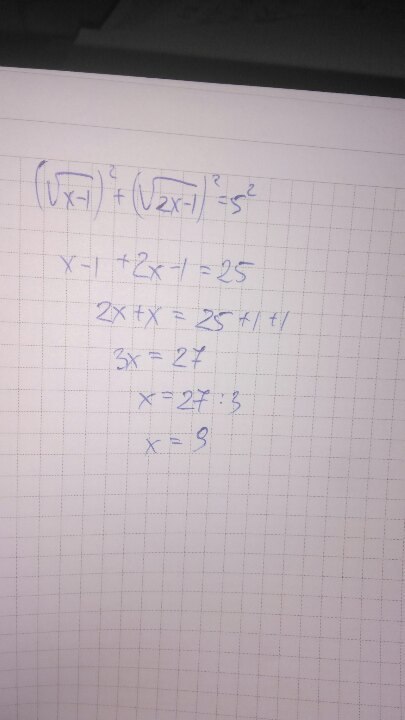 (√x-1)² + (√2x-1)² = 5²
x-1 + 2x-1 = 25
2x+x = 25+1+1
3x = 27
x = 27:3
x = 9